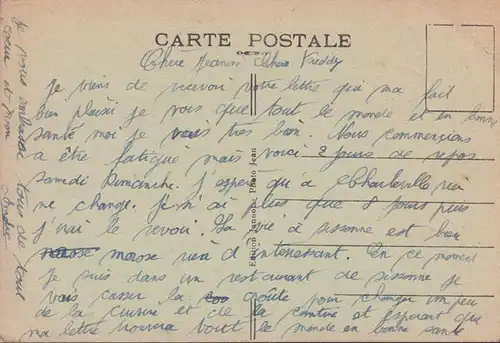 CARTE POSTALE
Chère Jeanine Cher Freddy
Je viens de recevoir votre lettre qui ma fait
bien plaisir je vois que tout le monde et en bonne
santé moi je vais très bien. Nous commençions
a être fatigué mais voici 2 jours de repos
samedi Dimanche. J'espère qu'à Charleville rien
ne change. Je n'ai plus que 8 jours puis
j'irai le revoir. La vie à sissonne est bien
mosse rien d'interessant. En ce moment
Je suis dans un restaurant de sissonne je
vais casser la croûte pour changer un peu
de la cuisine et de la cantine et esperant que
ma lettre trouvera tout le monde en bonne santé
Je vous embrasse tous de tout
coeur et-mon
Edition Jeannot Photo Jean